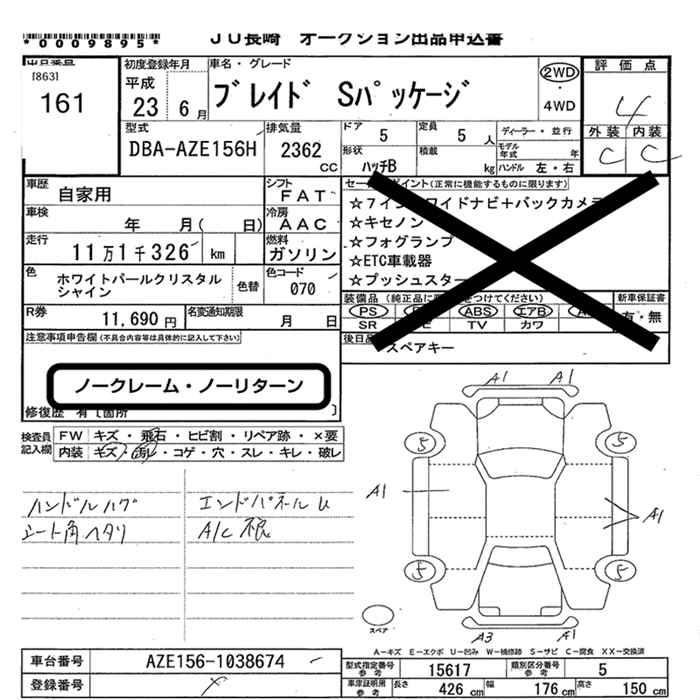 *0009895*
JU長崎 オークション出品申込書
出品番号
[863]
161
初度登録年月
平成
23 6月
車名・グレード
ブレイド Sパッケージ
2WD
・
4WD
評価点
4
外装 内装
C C
型式
DBA-AZE156H
排気量
2362
CC
ドア 5
定員 5人
ディーラー・並行
形状
ハッチB
積載
kg
モデル年式 年
ハンドル 左・右
車歴
自家用
シフト
FAT
車検
年 月( 日)
冷房
AAC
走行
11万1千326 km
燃料
ガソリン
色
ホワイトパールクリスタル
シャイン
色替
色コード
070
R券
11,690円
名変通知期限
月 日
セールスポイント(正常に機能するものに限ります)
☆7インチワイドナビ+バックカメラ
☆キセノン
☆フォグランプ
☆ETC車載器
☆プッシュスター
装備品(純正品に をつけてください)
新車保証書
PS ABS エアB
有・無
SR TV カワ
後日品
スペアキー
注意事項申告欄(不具合内容等は具体的に記入して下さい)
ノークレーム・ノーリターン
修復歴 有[箇所 ]
検査員
記入欄
FW キズ・飛石・ヒビ割・リペア跡・×要
内装 キズ・汚レ・コゲ・穴・スレ・キレ・破レ
ハンドルハゲ
シート角ヘタリ
エンドパネルU
A/C 不良
A1 A1
5 5
A1 A1
5 5
A3 A1
スペア
A-キズ E-エクボ U-凹み W-補修跡 S-サビ C-腐食 XX-交換済
車台番号 AZE156-1038674
登録番号
型式指定番号
参考
15617
類別区分番号
参考
5
車庫証明用
参考
長さ 426 cm 幅 176 cm 高さ 150 cm